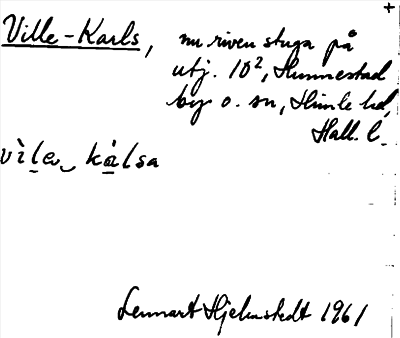 +
Ville-Karls, nu riven stuga på
utj. 10², Hunnestad
by o. sn, Himle hd,
Hall. l.
vìle kálsa
Lennart Hjelmstedt 1961